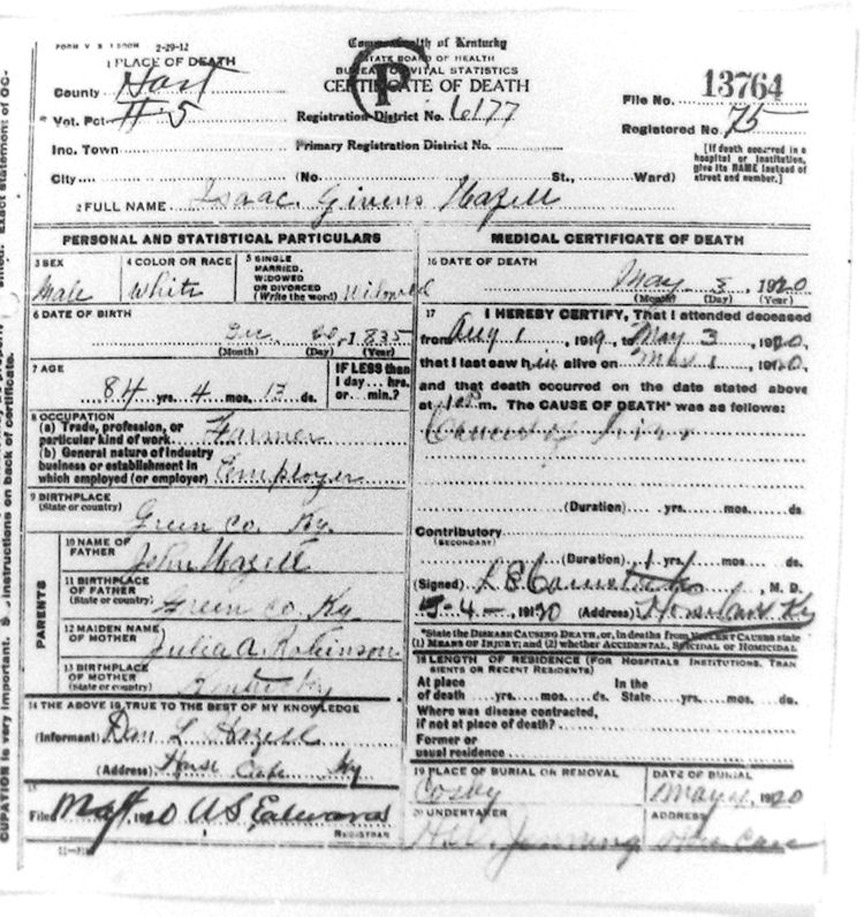 FORM V. S. 1 2-29-12
Commonwealth of Kentucky
STATE BOARD OF HEALTH
BUREAU OF VITAL STATISTICS
CERTIFICATE OF DEATH
P
1 PLACE OF DEATH
County Hart
Vot. Pct. #5
Inc. Town
City
Registration District No. 6177
Primary Registration District No.
(No. St., Ward)
File No. 13764
Registered No. 75
[If death occurred in a
hospital or institution,
give its NAME instead of
street and number.]
2 FULL NAME Isaac Givens Hazell
PERSONAL AND STATISTICAL PARTICULARS
3 SEX
Male
4 COLOR OR RACE
White
5 SINGLE
MARRIED,
WIDOWED
OR DIVORCED
(Write the word) Widowed
6 DATE OF BIRTH
Dec. 20, 1835
(Month) (Day) (Year)
7 AGE
84 yrs. 4 mos. 13 ds.
IF LESS than
1 day... hrs.
or... min.?
8 OCCUPATION
(a) Trade, profession, or
particular kind of work Farmer
(b) General nature of industry
business or establishment in
which employed (or employer) Employer
9 BIRTHPLACE
(State or country)
Green Co. Ky.
PARENTS
10 NAME OF
FATHER
John Hazell
11 BIRTHPLACE
OF FATHER
(State or country)
Green Co Ky
12 MAIDEN NAME
OF MOTHER
Julia A. Robinson
13 BIRTHPLACE
OF MOTHER
(State or country)
Kentucky
14 THE ABOVE IS TRUE TO THE BEST OF MY KNOWLEDGE
(Informant) Dan L Hazell
(Address) Horse Cave Ky
15
Filed 1920 Edwards
REGISTRAR
MEDICAL CERTIFICATE OF DEATH
16 DATE OF DEATH
May 3, 1920
(Month) (Day) (Year)
17 I HEREBY CERTIFY, That I attended deceased
from Aug 1, 1919, to May 3, 1920,
that I last saw him alive on May 1, 1920,
and that death occurred on the date stated above
at m. The CAUSE OF DEATH* was as follows:
Cancer of
(Duration) yrs. mos. ds.
Contributory
(SECONDARY)
(Duration) 1 yrs. mos. ds.
(Signed) M. D.
5-4-1920 (Address) Horse Cave Ky
*State the DISEASE CAUSING DEATH, or, in deaths from VIOLENT CAUSES state
(1) MEANS OF INJURY; and (2) whether ACCIDENTAL, SUICIDAL OR HOMICIDAL
18 LENGTH OF RESIDENCE (FOR HOSPITALS INSTITUTIONS, TRAN
SIENTS OR RECENT RESIDENTS)
At place In the
of death yrs. mos. ds. State yrs. mos. ds.
Where was disease contracted,
if not at place of death?
Former or
usual residence
19 PLACE OF BURIAL OR REMOVAL
Cosby
DATE OF BURIAL
May 4, 1920
20 UNDERTAKER
ADDRESS
Horse Cave